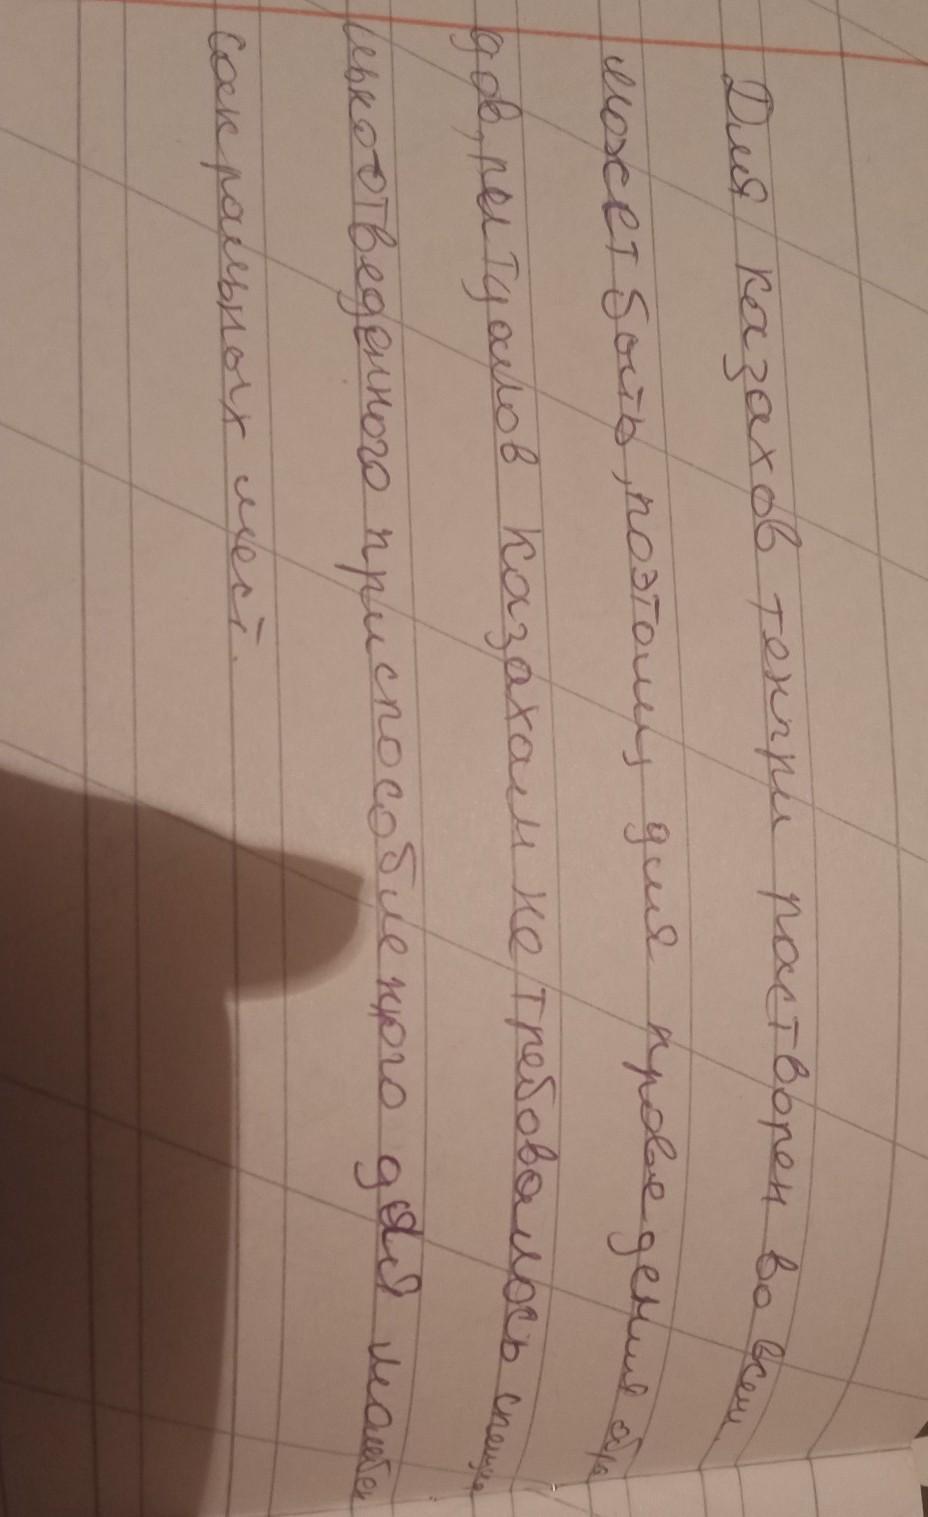 Для казахов тенгри растворен во всем,
может быть, поэтому для проведения обря
дов, ритуалов казахам не требовалось специа
льно отведенного приспособленного для молебен
сакральных мест.